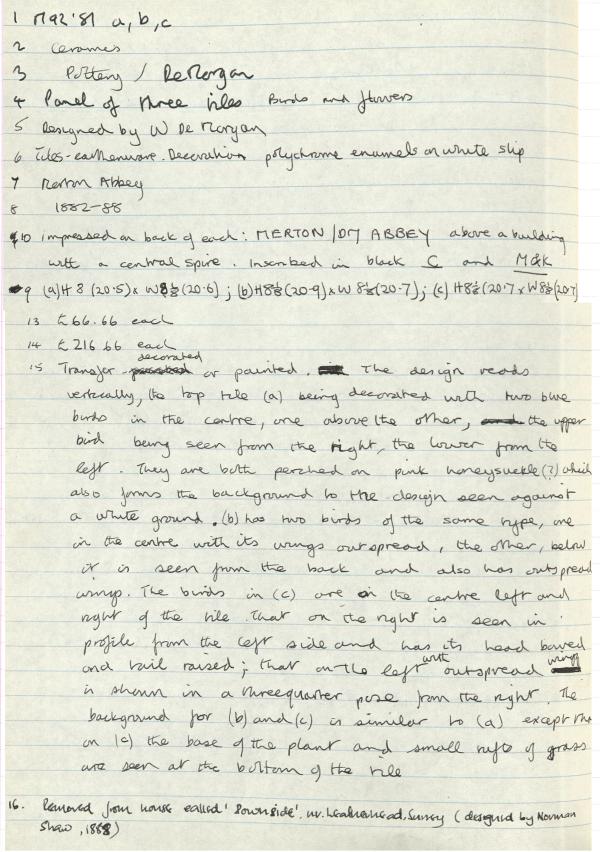 1 M92'81 a, b, c
2 Ceramics
3 Pottery / DeMorgan
4 Panel of three tiles Birds and flowers
5 Designed by W De Morgan
6 Tiles - earthenware. Decoration polychrome enamels on white slip
7 Merton Abbey
8 1882-88
10 impressed on back of each: MERTON / DM ABBEY above a building
with a central spire. Inscribed in black C and M&K
9 (a) H 8 (20.5) x W 8⅛ (20.6); (b) H 8¼ (20.9) x W 8⅛ (20.7); (c) H 8⅛ (20.7 x W 8⅛ (20.7)
13 £66.66 each
14 £216.66 each
15 Transfer decorated or painted. The design reads
vertically, the top tile (a) being decorated with two blue
birds in the centre, one above the other, the upper
bird being seen from the right, the lower from the
left. They are both perched on pink honeysuckle (?) which
also forms the background to the design seen against
a white ground. (b) has two birds of the same type, one
in the centre with its wings outspread, the other, below
it is seen from the back and also has outspread
wings. The birds in (c) are in the centre left and
right of the tile. That on the right is seen in
profile from the left side and has its head bowed
and tail raised; that on the left with outspread wings
is shown in a threequarter pose from the right. The
background for (b) and (c) is similar to (a) except tha
on (c) the base of the plant and small tufts of grass
are seen at the bottom of the tile
16. Removed from house called 'Downside', nr. Leatherhead, Surrey (designed by Norman
Shaw, 1888)